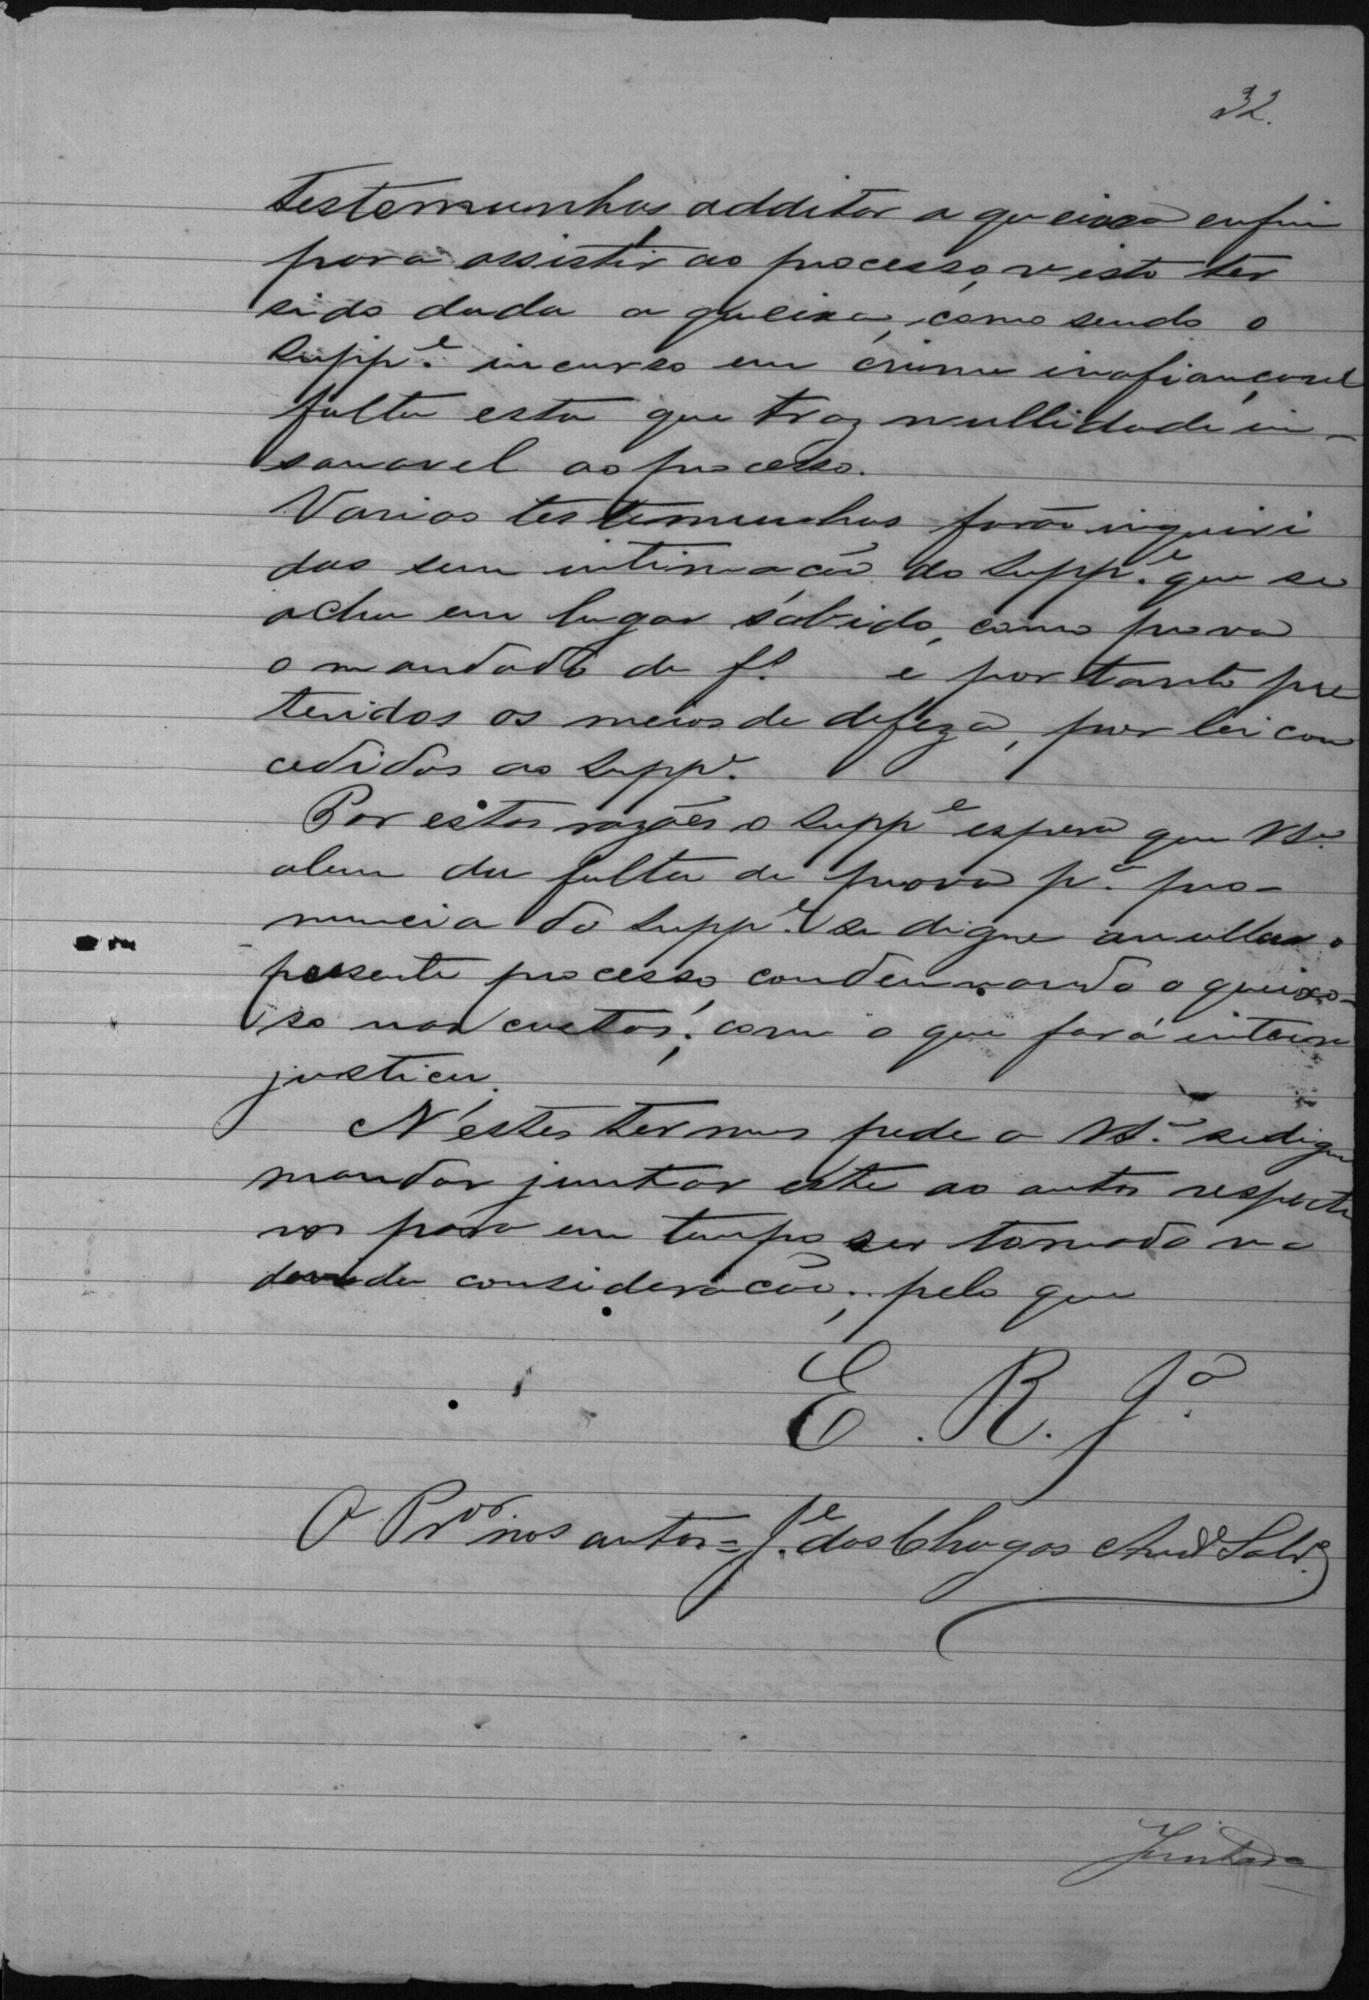 32.
testemunhas additar a queixa enfim
para assistir ao processo, visto ter
sido dada a queixa, como sendo o
Supp.e incurso em crime inafiançavel
falta esta que traz nullidade in-
sanavel ao processo.
Varias testemunhas forão inquiri
das sem intimação do Supp.e que se
acha em lugar sabido, como prova
o mandado de f.     e portanto pre
teridos os meios de defeza, por lei con
cedidos ao Supp.e
Por estas razões o Supp.e espera que VS.a
alem da falta de prova p.a pro-
nuncia do Supp.e se digne annullar o
presente processo condemnando o queixo-
so nas custas; com o que fará inteira
justiça.
N'estes termos pede a VS.a se digne
mandar juntar este ao autos respecti
vos para em tempo ser tomado na
devida consideração; pelo que
E. R. J.a
O Pr.or nos autos = J.e das Chagas And.e
Juntada